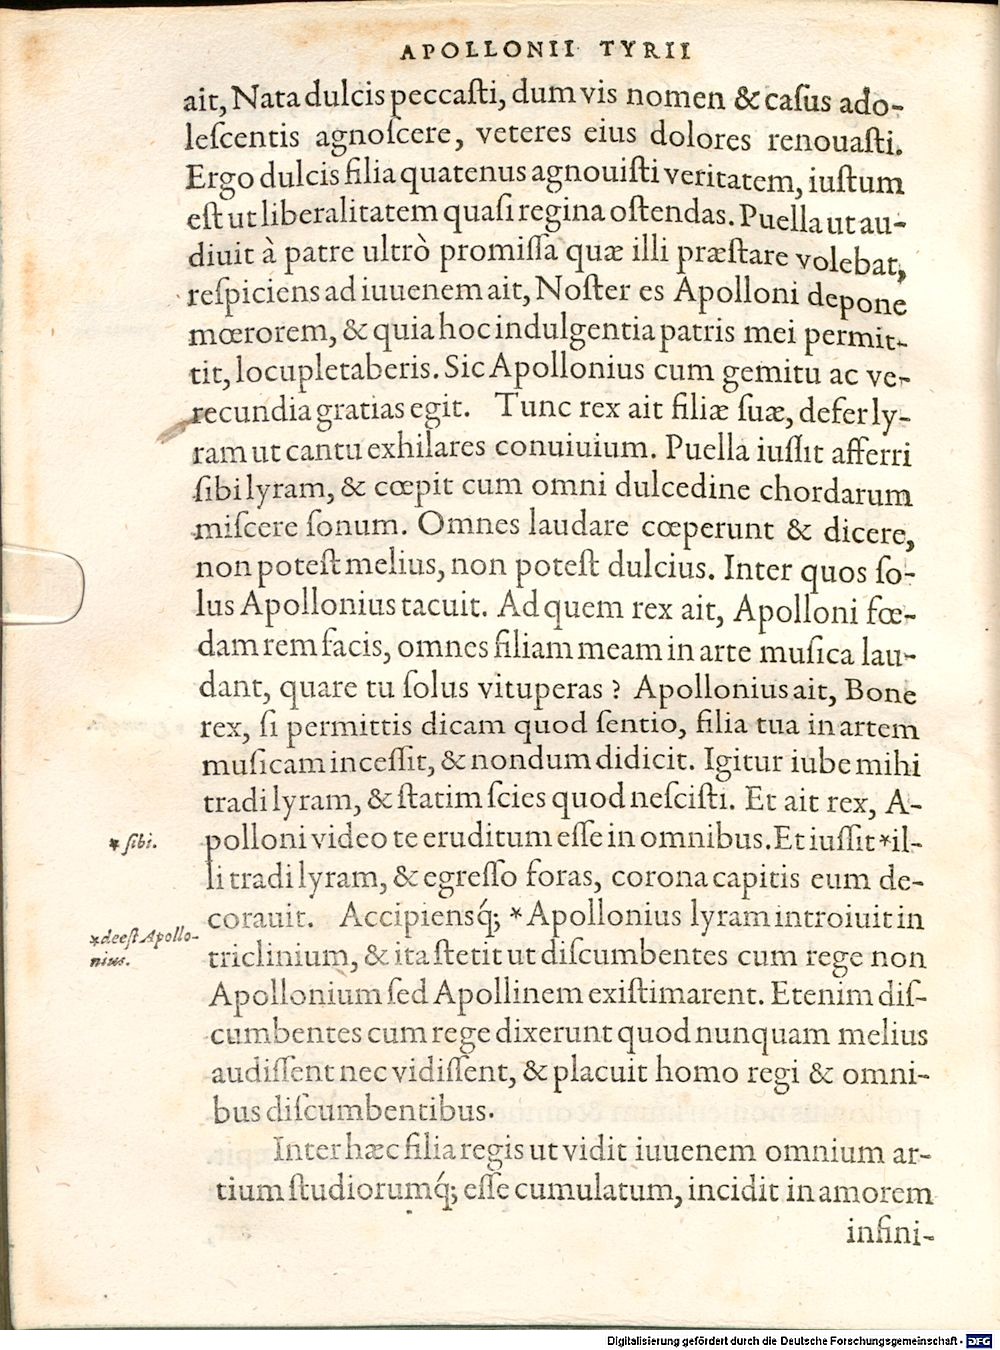 APOLLONII TYRII
ait, Nata dulcis peccaſti, dum vis nomen & caſus ado-
leſcentis agnoſcere, veteres eius dolores renouaſti.
Ergo dulcis filia quatenus agnouiſti veritatem, iuſtum
eſt ut liberalitatem quaſi regina oſtendas. Puella ut au-
diuit à patre ultrò promiſſa quæ illi præſtare volebat,
reſpiciens ad iuuenem ait, Noſter es Apolloni depone
mœrorem, & quia hoc indulgentia patris mei permit-
tit, locupletaberis. Sic Apollonius cum gemitu ac ve-
recundia gratias egit. Tunc rex ait filiæ ſuæ, defer ly-
ram ut cantu exhilares conuiuium. Puella iuſſit afferri
ſibi lyram, & cœpit cum omni dulcedine chordarum
miſcere ſonum. Omnes laudare cœperunt & dicere,
non poteſt melius, non poteſt dulcius. Inter quos ſo-
lus Apollonius tacuit. Ad quem rex ait, Apolloni fœ-
dam rem facis, omnes filiam meam in arte muſica lau-
dant, quare tu ſolus vituperas? Apollonius ait, Bone
rex, ſi permittis dicam quod ſentio, filia tua in artem
muſicam inceſſit, & nondum didicit. Igitur iube mihi
tradi lyram, & ſtatim ſcies quod neſciſti. Et ait rex, A-
polloni video te eruditum eſſe in omnibus. Et iuſſit *il-
* ſibi.
li tradi lyram, & egreſſo foras, corona capitis eum de-
corauit. Accipiensq́; *Apollonius lyram introiuit in
*deeſt Apollo-
nius.
triclinium, & ita ſtetit ut diſcumbentes cum rege non
Apollonium ſed Apollinem exiſtimarent. Etenim diſ-
cumbentes cum rege dixerunt quod nunquam melius
audiſſent nec vidiſſent, & placuit homo regi & omni-
bus diſcumbentibus.
Inter hæc filia regis ut vidit iuuenem omnium ar-
tium ſtudiorumq́; eſſe cumulatum, incidit in amorem
infini-
Digitalisierung gefördert durch die Deutsche Forschungsgemeinschaft - DFG